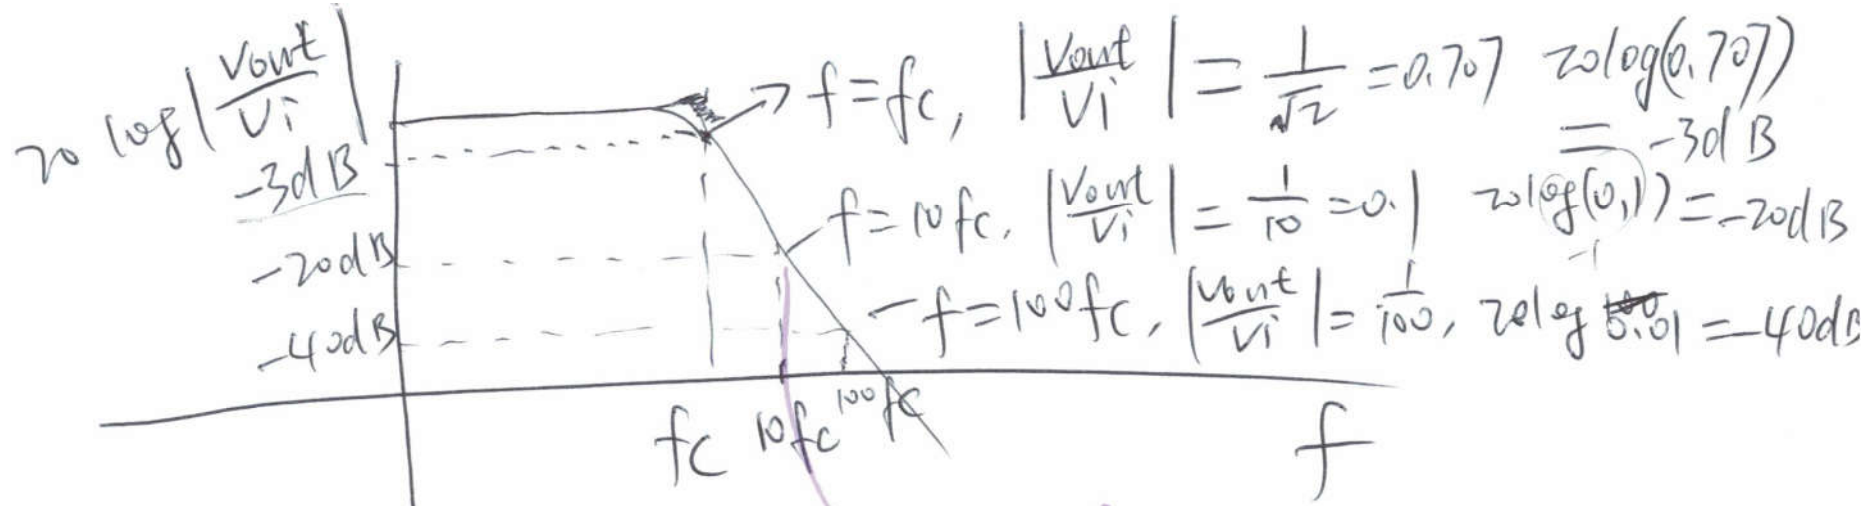 20 log|Vout/Vi|
f=fc, |Vout/Vi| = 1/√2 = 0.707 20log(0.707)
= -3dB
-3dB
f=10fc, |Vout/Vi| = 1/10 = 0.1 20log(0.1) = -20dB
-1
-20dB
-f=100fc, |Vout/Vi| = 1/100, 20log 0.01 = -40dB
-40dB
fc 10fc 100fc f